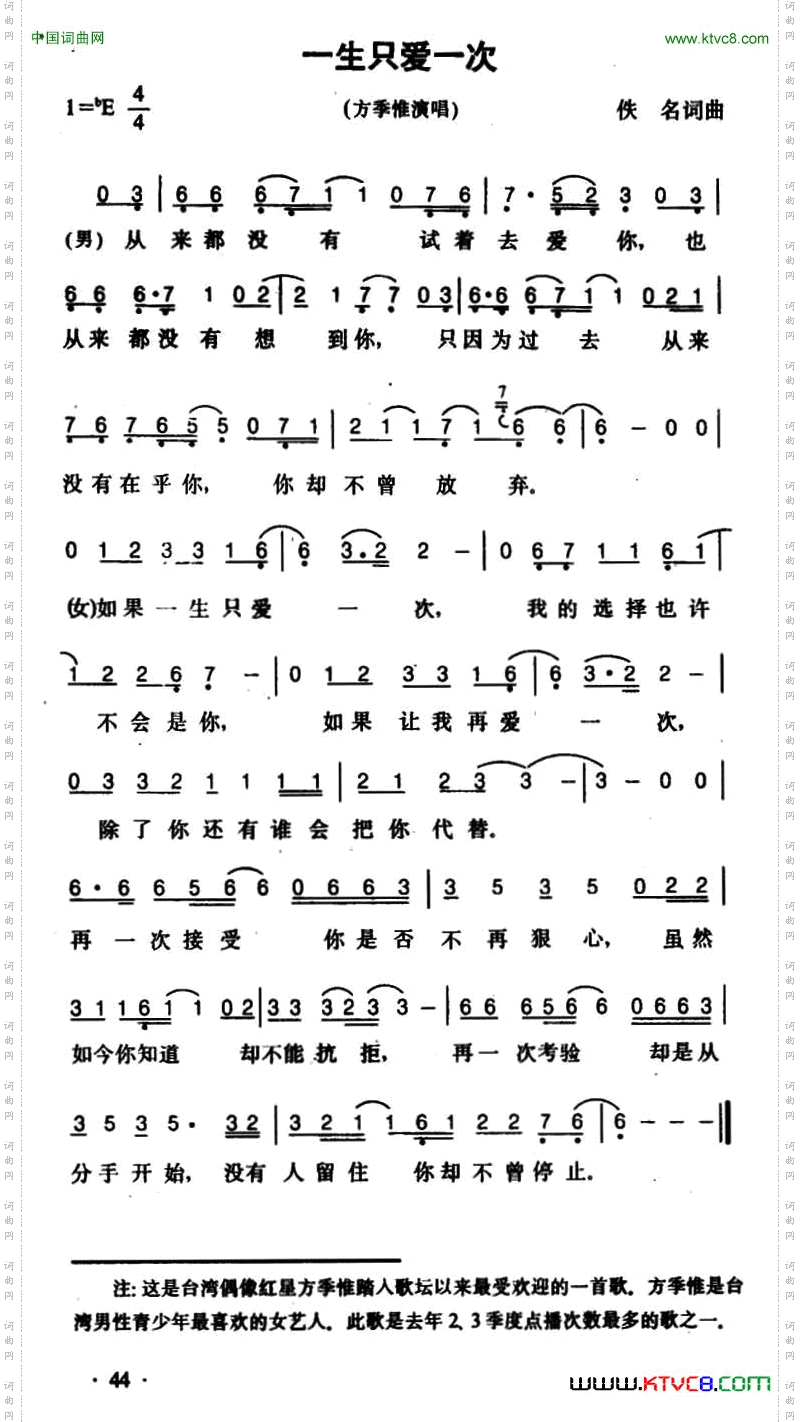 中国词曲网 www.ktvc8.com
一生只爱一次
1=♭E 4/4 (方季惟演唱) 佚 名词曲
0 3 | 6 6 6 7 1 1 0 7 6 | 7· 5 2 3 0 3 |
(男) 从 来 都 没 有 试 着 去 爱 你, 也
6 6 6·7 1 0 2 | 2 1 7 7 0 3 | 6·6 6 7 1 1 0 2 1 |
从来 都没 有 想 到你, 只因为过 去 从来
7 6 7 6 5 5 0 7 1 | 2 1 1 7 1 7 6 6 | 6 - 0 0 |
没有在乎你, 你却不曾 放 弃.
0 1 2 3 3 1 6 | 6 3.2 2 - | 0 6 7 1 1 6 1 |
(女)如果一生只爱 一 次, 我的选择也许
1 2 2 6 7 - | 0 1 2 3 3 1 6 | 6 3·2 2 - |
不会是你, 如果 让我再爱 一 次,
0 3 3 2 1 1 1 1 | 2 1 2 3 3 - | 3 - 0 0 |
除了你还有谁会 把你 代 替.
6·6 6 5 6 6 0 6 6 3 | 3 5 3 5 0 2 2 |
再一次接受 你是否 不再狠心, 虽然
3 1 1 6 1 1 0 2 | 3 3 3 2 3 3 - | 6 6 6 5 6 6 0 6 6 3 |
如今你知道 却不能抗拒, 再一次考验 却是从
3 5 3 5· 3 2 | 3 2 1 1 6 1 2 2 7 6 | 6 - - - ||
分手开始, 没有 人留住 你却不曾停止.
注: 这是台湾偶像红星方季惟踏人歌坛以来最受欢迎的一首歌. 方季惟是台
湾男性青少年最喜欢的女艺人. 此歌是去年 2、3 季度点播次数最多的歌之一.
· 44 ·
www.KTVC8.com
词曲网